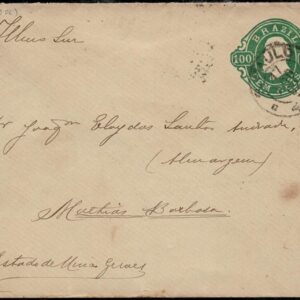 Illmo Snr
BRAZIL
100
CEM REIS
Snr Joaqm Eloy dos Santos Andrade,
(Armazem)
Mathias Barbosa.
Estado de Minas Geraes